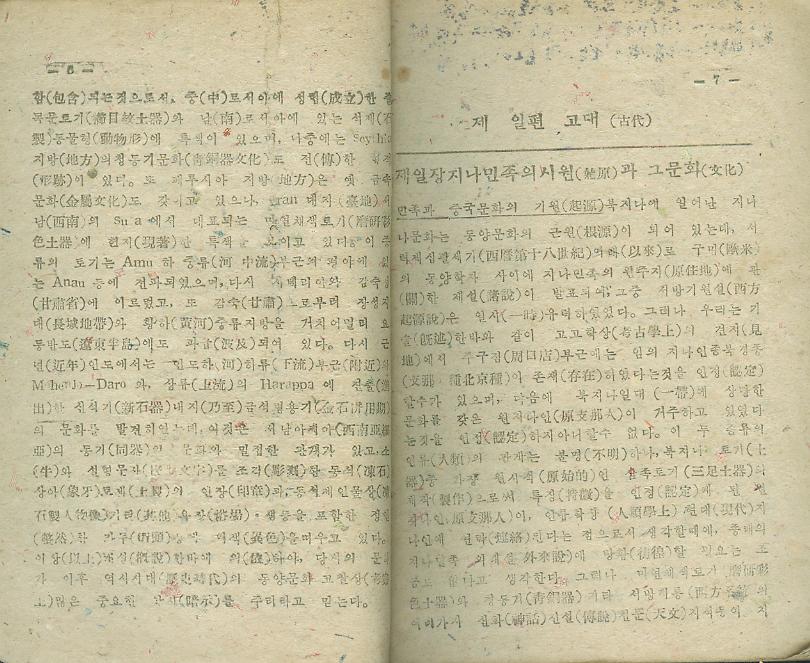 — 6 —
함(包含)되는것으로서, 중(中)로서아에 성립(成立)한
목문토기(櫛目紋土器)와 남(南)로서아에 있는 석제(石
製)동물형(動物形)에 특색이 있으며, 나중에는 Scythia
지방(地方)의청동기문화(青銅器文化)로 전(傳)한 형적
(形跡)이 있다. 또 지방(地方)은 옛 금속
문화(金屬文化)도 갖이고 있으나, Iran 대지(臺地)
남(西南)의 Susa에서 대표되는 마연채색토기(磨研彩
色土器)에 현저(現著)한 특색을 보이고 있다. 이 종
류의 토기는 Amu 하 중류(河 中流)부근의 평야에 있
는 Anau 등에 전파되였으며, 다시 감숙성
(甘肅省)에 이르렀고, 또 감숙(甘肅)으로부터 장성지
대(長城地帶)와 황하(黃河)중류지방을 거치어멀리 요
동반도(遼東半島)에도 파급(波及)되여 있다. 다시 근
년(近年)인도에서는 인도하(河)하류(下流)부근(附近)의
Mohenjo—Daro 와, 상류(上流)의 Harappa 에
出)한 신석기(新石器)내지(乃至)금석병용기(金石併用期)
의 문화를 발견하였는데, 여것은 서남아세아(西南亞細
亞)의 동기(同器)의 문화와 밀접한 관계가 있고, 소
(牛)와 선형문자 를 조각(彫刻)한 동석(凍石)
상아(象牙)토제(土製)의 인장(印章)과, 동석제인물상(凍
石製人物像)기타(其他) 등을 포함한 정연
(整然)한 가구(街頭)등이 이색(異色)을띄우고 있다.
이상(以上)개설(概說)한바에 의(依)하야, 당시의 문화
가 이후 역사시대(歷史時代)의 동양문화 고찰상
상)많은 중요한 암시(暗示)를 주리라고 믿는다.
— 7 —
제 일편 고대 (古代)
제일장지나민족의시원(始原)과 그문화(文化)
민족과 중국문화의 기원(起源)북지나에 일어난 지나
나문화는 동양문화의 근원(根源)이 되여 있는데, 서
력제십팔세기(西曆第十八世紀)이래(以來)로 구미(歐米)
의 동양학자 사이에 지나민족의 원주지(原住地)에 관
(關)한 제설(諸說)이 발표되여, 그중 서방기원설(西方
起源說)은 일시(一時)유력하였었다. 그러나 우리는 기
술(旣述)한바와 같이 고고학상(考古學上)의 견지(見
地)에서 주구점(周口店)부근에는 일의 지나인종북경종
(支那人種北京種)이 존재(存在)하였다는것을 인정(認定)
할수가 있으며, 다음에 북지나일대(一帶)에 상당한
문화를 갖은 원지나인(原支那人)이 거주하고 있었다
는것을 인정(認定)하지아니할수 없다. 이 두 종류의
인류(人類)의 관계는 불명(不明)하나, 북지나 토기(土
器)중 가장 원시적(原始的)인 삼족토기(三足土器)의
제작(製作)으로써 특징(特徵)을 인정(認定)케 된 원
지나인(原支那人)이, 인류학상(人類學上) 현대(現代)지
나인에 연락(連絡)된다는 점으로서 생각할때에, 종래의
지나민족 외래설(外來說)에 방황(彷徨)할 필요는 조
금도 없다고 생각한다. 그러나 마연채색토기(磨研彩
色土器)와 청동기(青銅器)기타 서방계통(西方系統)의
여러가지 신화(神話)전설(傳說)천문(天文)지식등이 지